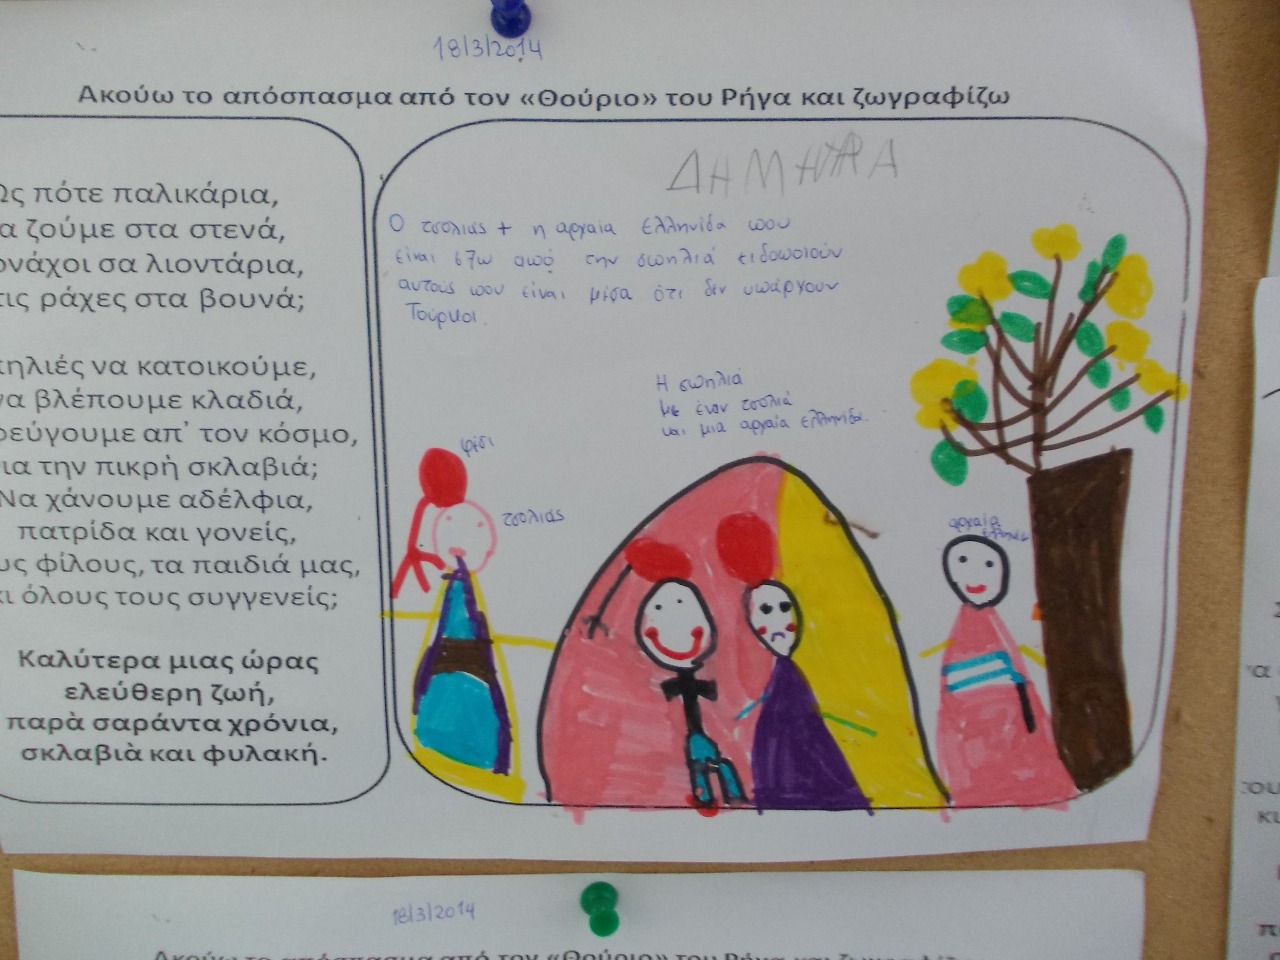 18/3/2014
Ακούω το απόσπασμα από τον «Θούριο» του Ρήγα και ζωγραφίζω
Ως πότε παλικάρια,
α ζούμε στα στενά,
ονάχοι σα λιοντάρια,
τις ράχες στα βουνά;
πηλιές να κατοικούμε,
να βλέπουμε κλαδιά,
ρεύγουμε απ' τον κόσμο,
ια την πικρὴ σκλαβιά;
Να χάνουμε αδέλφια,
πατρίδα και γονείς,
υς φίλους, τα παιδιά μας,
κι όλους τους συγγενείς;
Καλύτερα μιας ώρας
ελεύθερη ζωή,
παρὰ σαράντα χρόνια,
σκλαβιὰ και φυλακή.
ΔΗΜΗΤΡΑ
Ο τσολιάς + η αρχαία Ελληνίδα που
είναι έξω από την σπηλιά ειδοποιούν
αυτους που είναι μέσα ότι δεν υπάρχουν
Τούρκοι.
Η σπηλιά
με έναν τσολιά
και μια αρχαία ελληνίδα.
φέσι
τσολιάς
αρχαία
18/3/2014
Ακούω το απόσπασμα από τον «Θούριο» του Ρήγα και